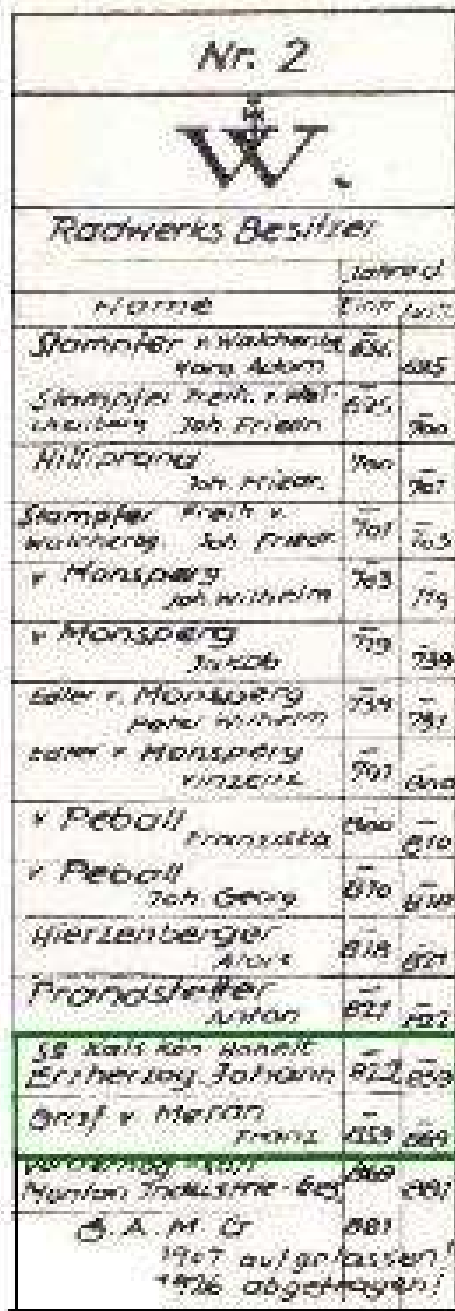 Nr. 2
W.
Radwerks Besitzer
Name
Stampfer v. Walchenbg
Hans Adam
Stampfer Freih. v. Wal-
chenberg Joh. Friedr.
700
Hillprand
Joh. Friedr.
700 701
Stampfer Freih. v.
Walchenbg. Joh. Friedr.
701 703
v. Monsperg
Joh. Wilhelm
703 719
v. Monsperg
Jakob
719 739
Edler v. Monsperg
Wilhelm
739
Edler v. Monsperg
Vinzenz
800
v. Peball
Franziska
800 810
v. Peball
Joh. Georg
810 818
Hierzenberger
Alois
818 821
Prandstetter
Anton
821 822
Erzherzog Johann
822 859
Graf v. Meran
Franz
859 869
869 881
Montan Industrie-Ges.
Ö. A. M. G 881
1907 aufgelassen!
1926 abgetragen!